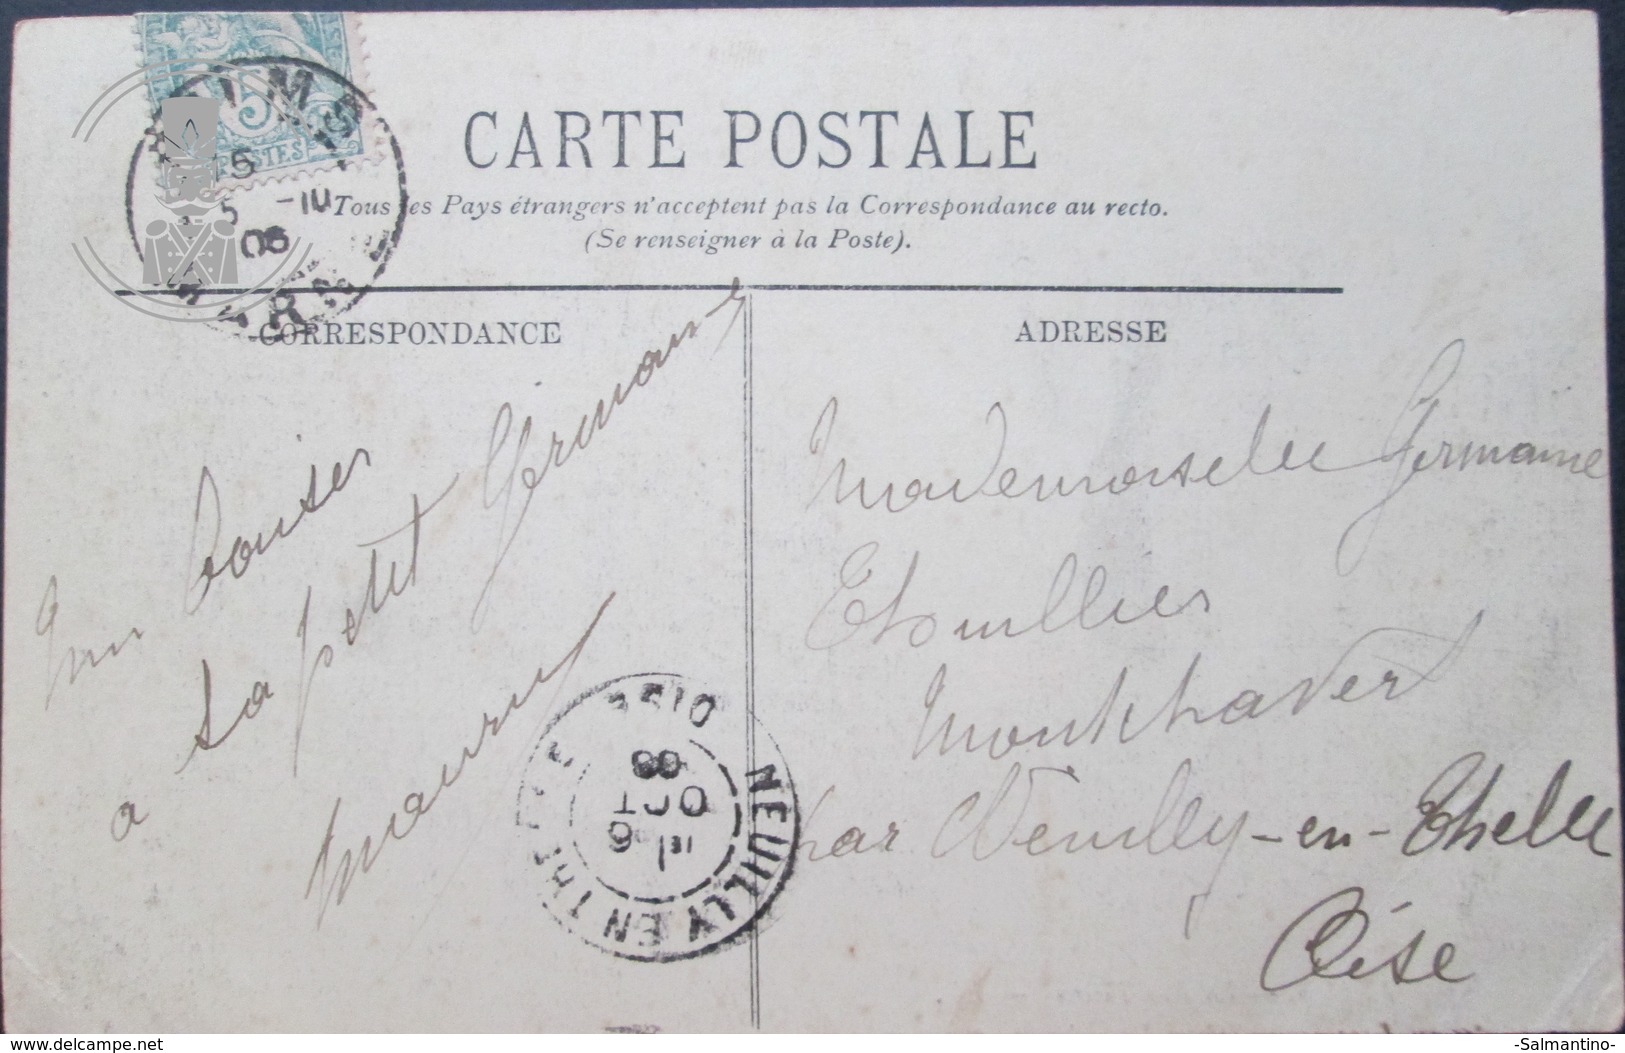 5
POSTES
REIMS
5 -10
06
MARNE
CARTE POSTALE
Tous les Pays étrangers n'acceptent pas la Correspondance au recto.
(Se renseigner à la Poste).
CORRESPONDANCE
ADRESSE
un Bouser
a la petit Germaine
Maurice
Mademoiselle Germaine
Etouillier
par Neuilly-en-Thelle
Oise
NEUILLY EN THELLE
OISE
9
OCT
delcampe.net
-Salmantino-